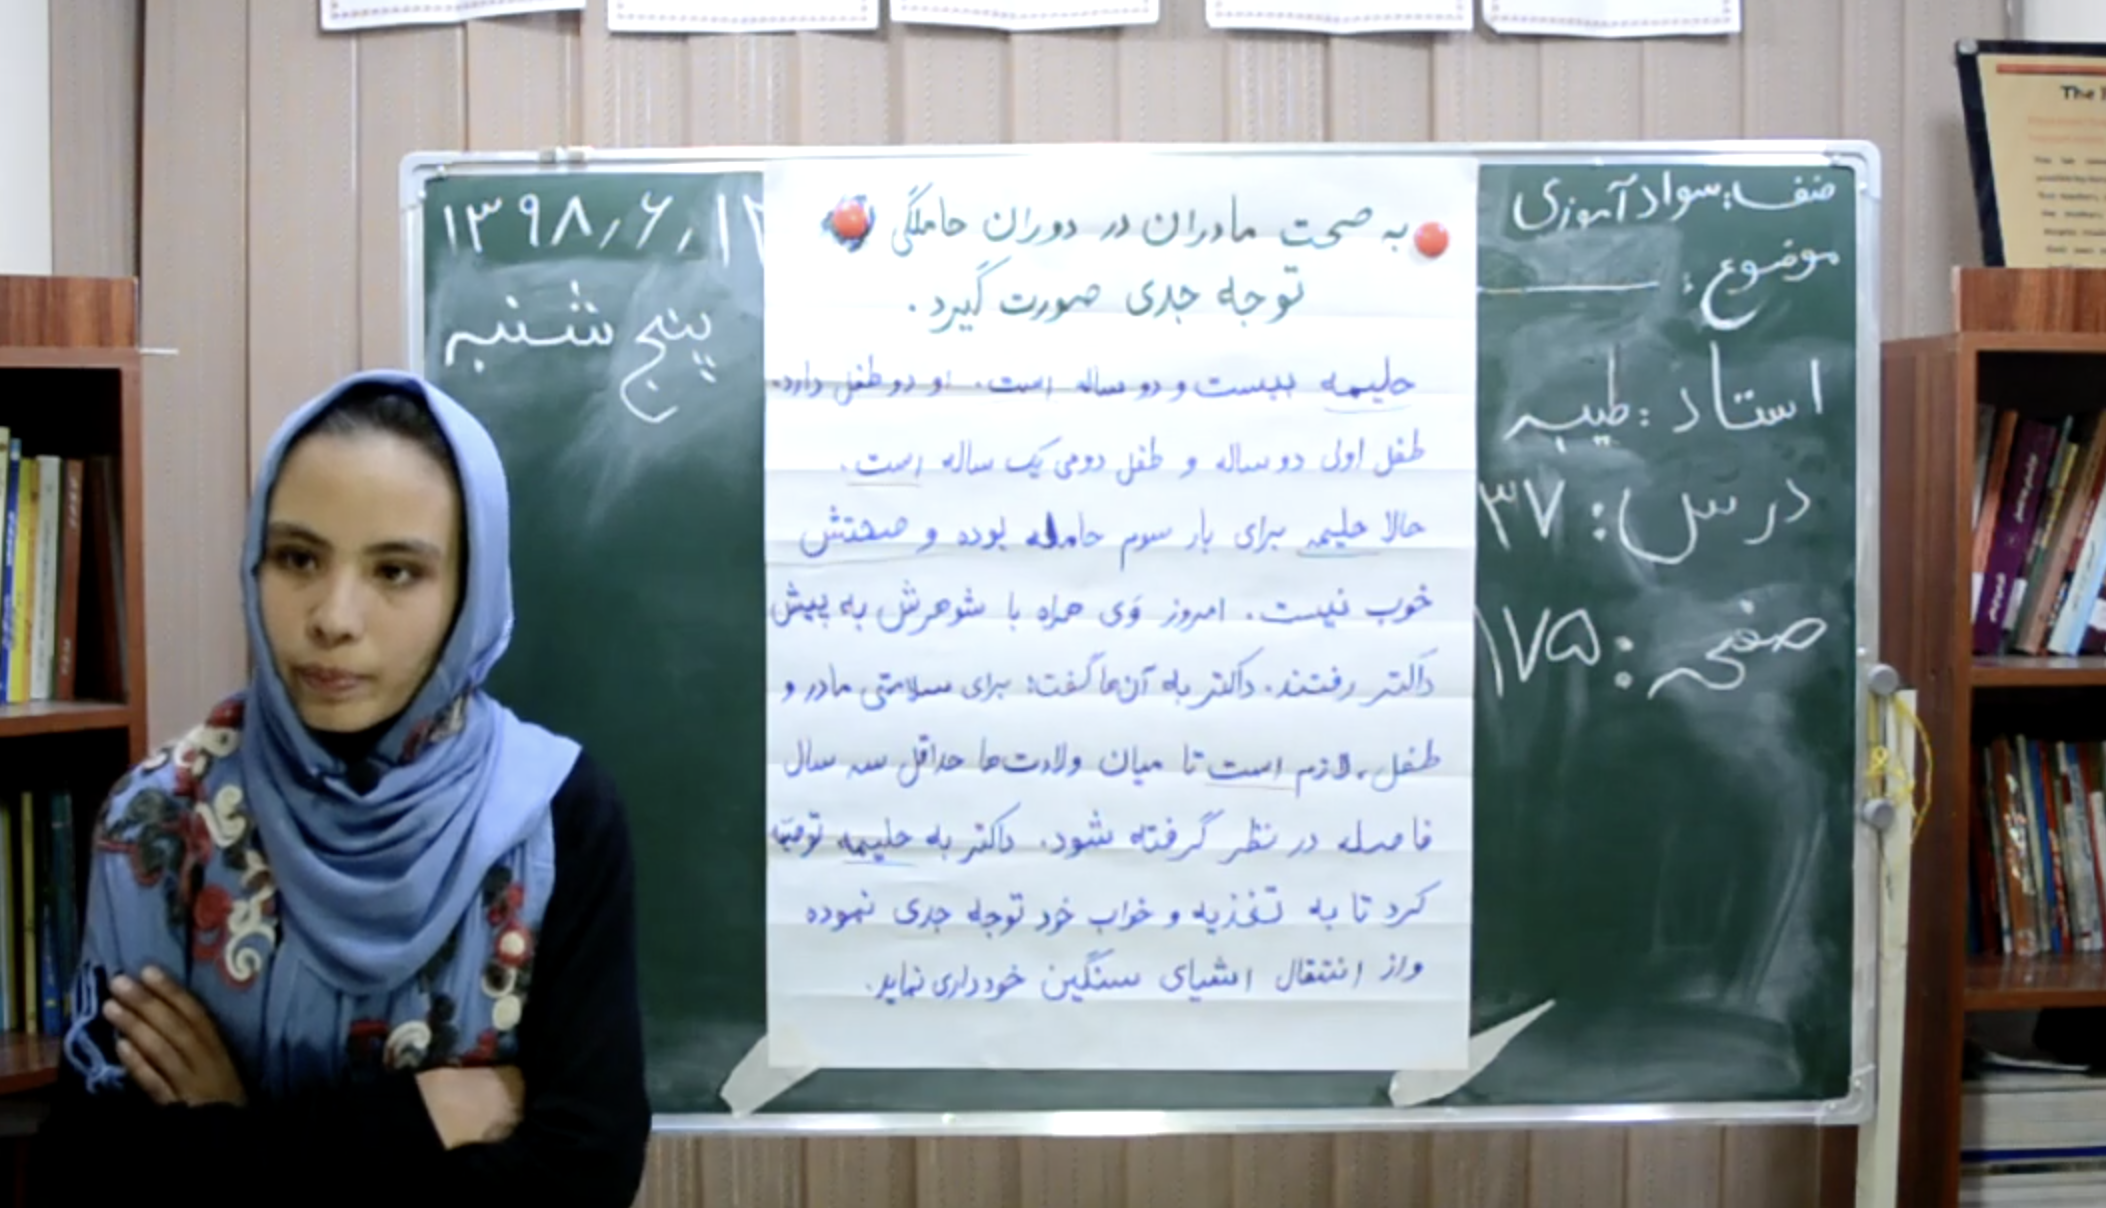 صنف: سواد آموزی
موضوع:
استاد: طیبه
درس: ۳۷
صفحه: ۱۷۵
به صحت مادران در دوران حاملگی
توجه جدی صورت گیرد.
حلیمه بیست و دو ساله است. او دو طفل دارد.
طفل اولی دو ساله و طفل دومی یک ساله است.
حالا حلیمه برای بار سوم حامله بوده و صحتش
خوب نیست. امروز وَی همراه با شوهرش به پیش
داکتر رفتند. داکتر به آن‌ها گفت: برای سلامتی مادر و
طفل، لازم است تا میان ولادت‌ها حداقل سه سال
فاصله در نظر گرفته شود. داکتر به حلیمه توصیه
کرد تا به تغذیه و خواب خود توجه جدی نموده
و از انتقال اشیای سنگین خودداری نماید.
۱۳۹۸٫۶٫۱
پنج شنبه
The